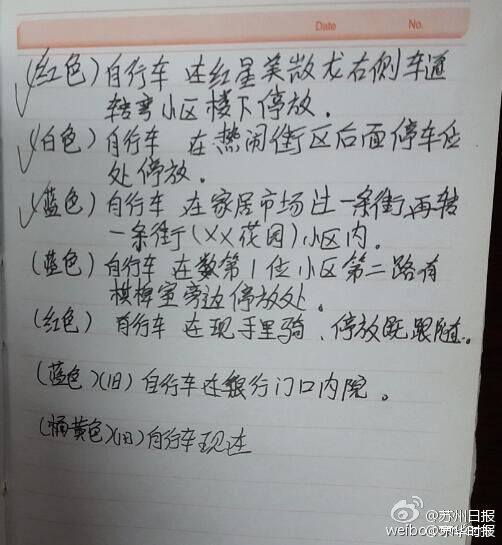 Date No.
(红色)自行车 在红星美凯龙右侧车道
转弯小区楼下停放。
(白色)自行车 在热闹街区后面停车位
处停放。
(蓝色)自行车 在家居市场过一条街,再转
一条街(XX花园)小区内。
(蓝色)自行车 在数第1位小区第二路有
棋牌室旁边停放处。
(红色) 自行车 在现手里骑、停放既跟随。
(蓝色)(旧)自行车在银行门口内院。
(橘黄色)(旧)自行车现在
@苏州日报
weibo